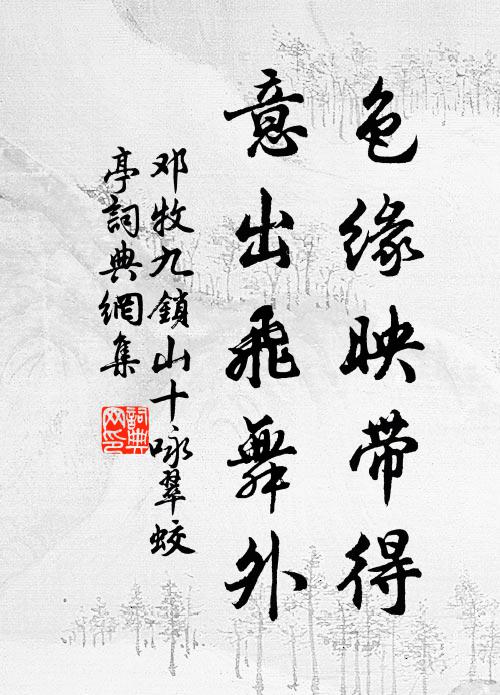 色缘映带得
意出飛舞外
邓牧九鎖山十咏翠蛟
亭詞典網集
詞典网印